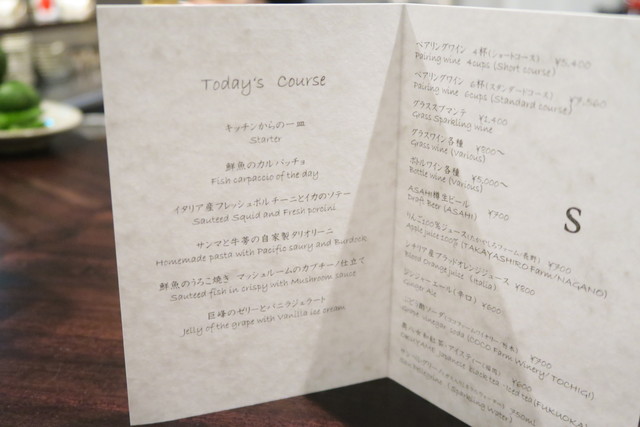 Today's Course
キッチンからの一皿
Starter
鮮魚のカルパッチョ
Fish carpaccio of the day
イタリア産フレッシュポルチーニとイカのソテー
Sauteed Squid and Fresh porcini
サンマと牛蒡の自家製タリオリーニ
Homemade pasta with Pacific saury and Burdock
鮮魚のうろこ焼き マッシュルームのカプチーノ仕立て
Sauteed fish in crispy with Mushroom sauce
巨峰のゼリーとバニラジェラート
Jelly of the grape with Vanilla ice cream
ペアリングワイン 4杯(ショートコース) ¥5,400
Pairing wine 4cups (Short course)
ペアリングワイン 6杯(スタンダードコース) ¥7,560
Pairing wine 6cups (Standard course)
グラススプマンテ ¥1,400
Grass Sparkling wine
グラスワイン各種 ¥800〜
Grass wine (Various)
ボトルワイン各種 ¥5,000〜
Bottle wine (Various)
ASAHI樽生ビール ¥700
Draft Beer (ASAHI)
りんご100%ジュース ¥700
Apple juice 100% (TAKAYASHIRO Farm/NAGANO)
シチリア産ブラッドオレンジジュース ¥800
Blood Orange juice (Italia)
ジンジャーエール(辛口) ¥600
Ginger Ale
¥700
Grape vinegar soda (COCO Farm Winery/TOCHIGI)
¥600
Japanese Black tea - iced tea (FUKUOKA)
(Sparkling Water)
S